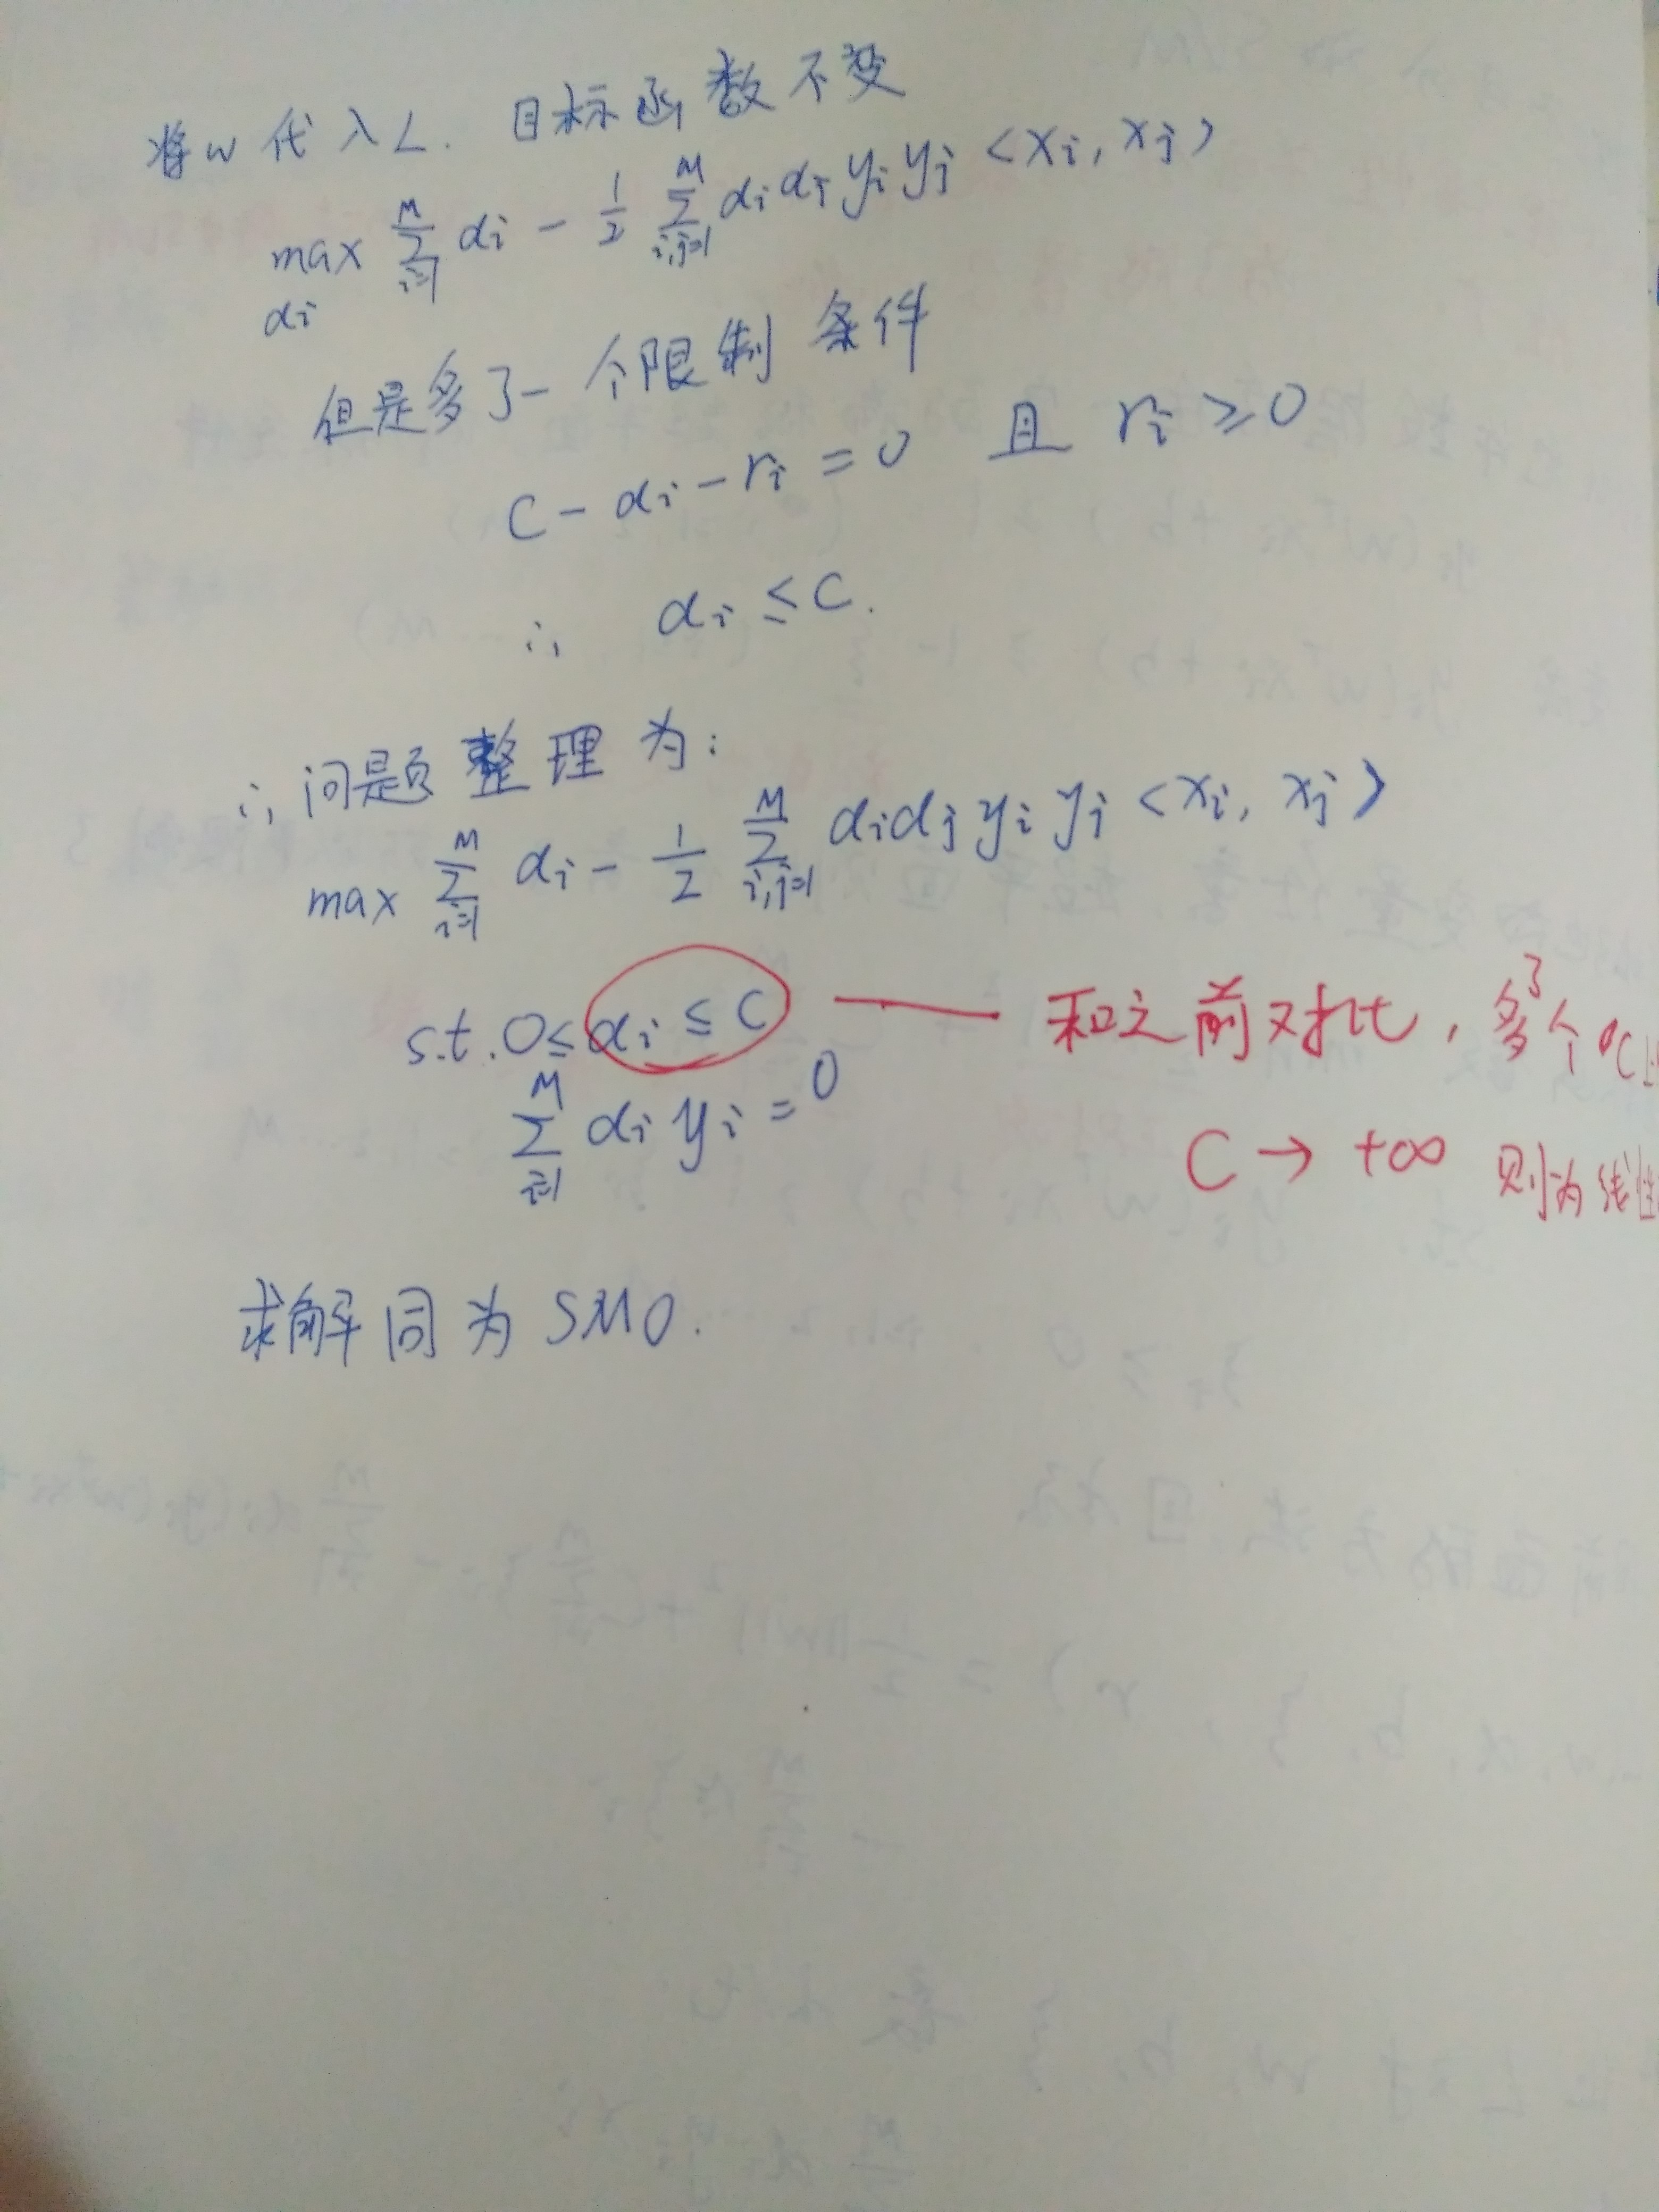 将w代入L. 目标函数不变
max_{αi} Σ_{i=1}^{M} αi - 1/2 Σ_{i,j=1}^{M} αi αj yi yj <xi, xj>
但是多了一个限制条件
C - αi - ri = 0 且 ri ≥ 0
∴ αi ≤ C.
∴ 问题整理为:
max Σ_{i=1}^{M} αi - 1/2 Σ_{i,j=1}^{M} αi αj yi yj <xi, xj>
s.t. 0 ≤ αi ≤ C —— 和之前对比, 多了个C
Σ_{i=1}^{M} αi yi = 0
C → +∞ 则为线性
求解同为SMO.